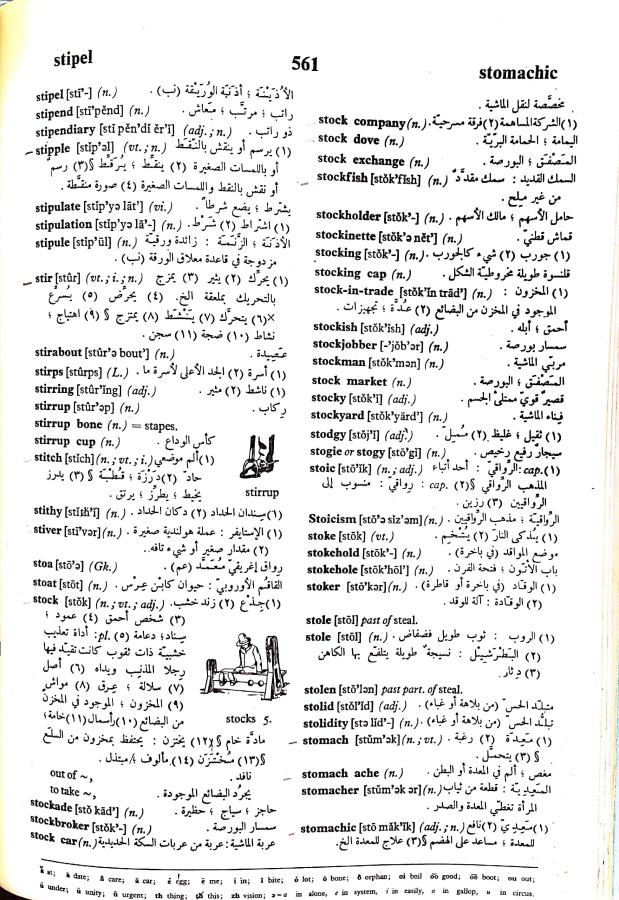 stipel
561
stomachic
stipel [stī'-] (n.) الأُذَيْنَة ؛ أُذَنَيّة الوُرَيْقة (نب) .
stipend [stī'pĕnd] (n.) راتب ؛ مرتَّب ؛ مَعاش .
stipendiary [stī pĕn'dĭ ĕr'ĭ] (adj.; n.) ذو راتب .
stipple [stĭp'əl] (vt.; n.) (١) يرسم أو ينقش بالنُّقَط
أو باللمسات الصغيرة (٢) ينقِّط ؛ يُرَقِّط §(٣) رسم
أو نقش بالنقط واللمسات الصغيرة (٤) صورة منقَّطة .
stipulate [stĭp'yə lāt'] (vi.) يشترط ؛ يضع شرطاً .
stipulation [stĭp'yə lā'-] (n.) (١) اشتراط (٢) شَرْط .
stipule [stĭp'ūl] (n.) الأذَنَة ؛ الزَّنَمَة : زائدة ورقيّة
مزدوجة في قاعدة معلاق الورقة (نب) .
stir [stûr] (vt.; i.; n.) (١) يحرِّك (٢) يثير (٣) يمزج
بالتحريك بملعقة الخ. (٤) يحرِّض (٥) يسرِّع
×(٦) يتحرَّك (٧) يَنْشَط (٨) يمتزج §(٩) اهتياج ؛
نشاط (١٠) ضجة (١١) سجن .
stirabout [stûr'ə bout'] (n.) عَصيدة .
stirps [stûrps] (L.) (١) أسرة (٢) الجد الأعلى لأسرة ما .
stirring [stûr'ĭng] (adj.) (١) ناشط (٢) مثير .
stirrup [stûr'əp] (n.) رِكاب .
stirrup bone (n.) = stapes.
stirrup cup (n.) كأس الوداع .
stitch [stĭch] (n.; vt.; i.) (١) ألم موضعي
حادّ (٢) دَرْزَة ؛ قُطْبَة §(٣) يدرز
يخيط ؛ يطرِّز ؛ يرتق .
stirrup
stithy [stĭth'ĭ] (n.) (١) سِندان الحداد (٢) دكان الحداد .
stiver [stī'vər] (n.) (١) الإستايفر : عملة هولندية صغيرة .
(٢) مقدار صغير أو شيء تافه.
stoa [stō'ə] (Gk.) رواق إغريقيّ مُعَمَّد (عم) .
stoat [stōt] (n.) القاقُم الأوروبيّ : حيوان كابْن عِرْس .
stock [stŏk] (n.; vt.; adj.) (١) جِذْع (٢) زند خشب.
(٣) شخص أحمق (٤) عمود ؛
سِناد؛ دعامة (٥) pl.: أداة تعذيب
خشبيّة ذات ثقوب كانت تقيّد فيها
رجلا المذنب ويداه (٦) أصل
(٧) سلالة ؛ عِرق (٨) مواش
(٩) المخزون ؛ الموجود في المخزن
من البضائع (١٠) رأسمال (١١) خامة؛
مادّة خام §(١٢) يختزن ؛ يحتفظ بمخزون من السلع
§(١٣) مُخْتَزَن (١٤) مألوف ؛ مبتذل .
stocks 5.
out of ~, نافد .
to take ~, يجرُد البضائع الموجودة .
stockade [stŏ kād'] (n.) حاجز ؛ سياج ؛ حظيرة .
stockbroker [stŏk'-] (n.) سمسار البورصة .
stock car (n.) عربة الماشية: عربة من عربات السكة الحديدية
مخصَّصة لنقل الماشية .
stock company (n.) (١) الشركة المساهمة (٢) فرقة مسرحيّة.
stock dove (n.) اليمامة ؛ الحمامة البريّة .
stock exchange (n.) المَصْفَق ؛ البورصة .
stockfish [stŏk'fĭsh] (n.) السمك القديد : سمك مقدَّد
من غير ملح .
stockholder [stŏk'-] (n.) حامل الأسهم ؛ مالك الأسهم .
stockinette [stŏk'ə nĕt'] (n.) قماش قطنيّ .
stocking [stŏk'-] (n.) (١) جورب (٢) شيء كالجورب .
stocking cap (n.) قلنسوة طويلة مخروطيّة الشكل .
stock-in-trade [stŏk'ĭn trād'] (n.) (١) المخزون :
الموجود في المخزن من البضائع (٢) عُدَّة ؛ تجهيزات .
stockish [stŏk'ĭsh] (adj.) أحمق ؛ أبله .
stockjobber [-'jŏb'ər] (n.) سمسار بورصة .
stockman [stŏk'mən] (n.) مربّي الماشية .
stock market (n.) المَصْفَق ؛ البورصة .
stocky [stŏk'ĭ] (adj.) قصير قويّ ممتلئ الجسم .
stockyard [stŏk'yärd'] (n.) فِناء الماشية .
stodgy [stŏj'ĭ] (adj.) (١) ثقيل ؛ غليظ (٢) مُمِلّ .
stogie or stogy [stō'gĭ] (n.) سيجار رفيع رخيص .
stoic [stō'ĭk] (n.; adj.) (١) cap.: الرِّواقيّ : أحد أتباع
المذهب الرِّواقي §(٢) cap. : رواقيّ : منسوب إلى
الرواقيين (٣) رزين .
Stoicism [stō'ə sĭz'əm] (n.) الرِّواقيّة ؛ مذهب الرواقيين .
stoke [stōk] (vt.) (١) يُذكي النار (٢) يُتْخِم .
stokehold [stōk'-] (n.) موضع المواقد (في باخرة) .
stokehole [stōk'hōl'] (n.) باب الأتّون ؛ فتحة الفرن .
stoker [stō'kər] (n.) (١) الوقّاد (في باخرة أو قاطرة) .
(٢) الوقّادة : آلة للوقد .
stole [stōl] past of steal.
stole [stōl] (n.) (١) الروب : ثوب طويل فضفاض .
(٢) البَطْرَشِيل : نسيجة طويلة يتلفّع بها الكاهن
(٣) دِثار .
stolen [stō'lən] past part. of steal.
stolid [stŏl'ĭd] (adj.) متبلِّد الحسّ (من بلاهة أو غباء) .
stolidity [stə lĭd'-] (n.) تبلُّد الحسّ (من بلاهة أو غباء) .
stomach [stŭm'ək] (n.; vt.) (١) مَعِدَة (٢) رغبة .
§(٣) يتحمَّل .
stomach ache (n.) مغص ؛ ألم في المعدة أو البطن .
stomacher [stŭm'ək ər] (n.) المَعِدِيّة : قطعة من ثياب
المرأة تغطّي المعدة والصدر .
stomachic [stō măk'ĭk] (adj.; n.) (١) مَعِديّ (٢) نافع
للمعدة ؛ مساعد على الهضم §(٣) علاج للمعدة الخ.
ă at; ā date; â care; ä car; ĕ egg; ē me; ĭ in; ī bite; ŏ lot; ō bone; ô orphan; oi boil o͝o good; o͞o boot; ou out;
ŭ under; ū unity; û urgent; th thing; th this; zh vision; ə = a in alone, e in system, i in easily, o in gallop, u in circus.